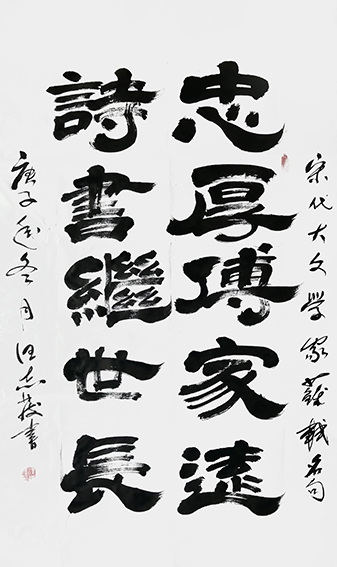 宋代大文學家蘇軾名句
忠厚傳家遠
詩書繼世長
庚子年冬月汪志書